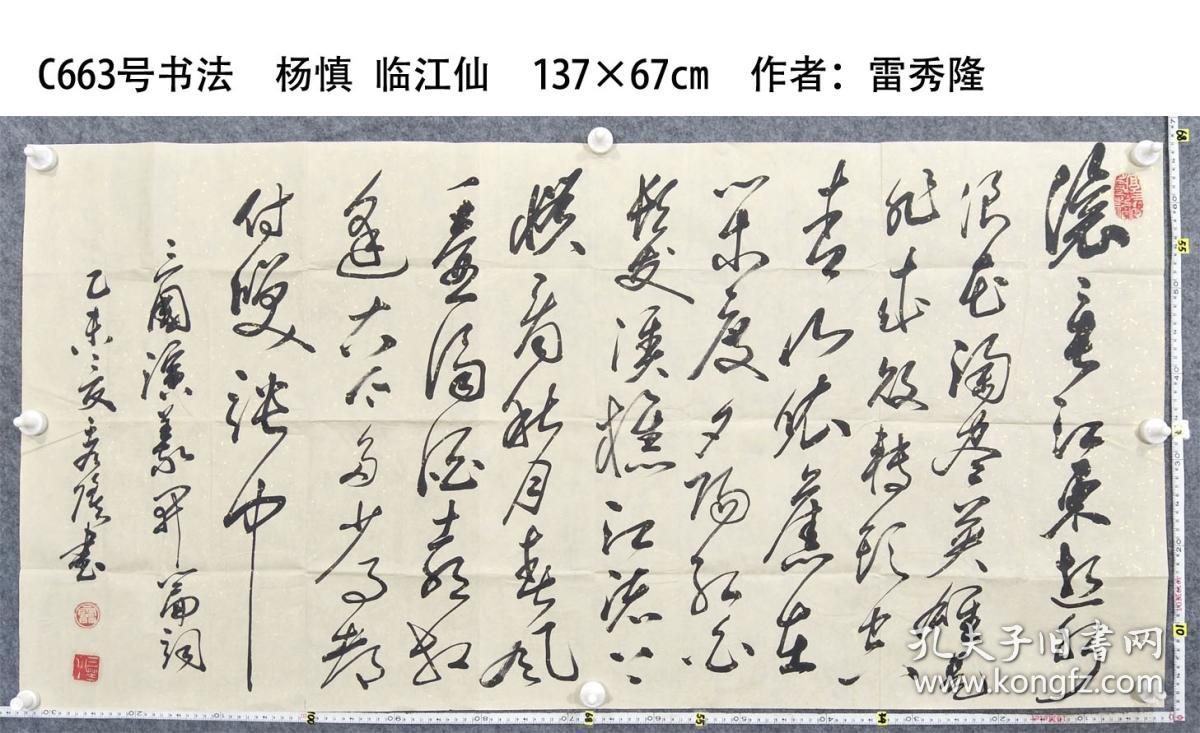 C663号书法 杨慎 临江仙 137×67cm 作者：雷秀隆
滚滚长江东逝水
浪花淘尽英雄是
非成败转头空
青山依旧在
几度夕阳红白
发渔樵江渚上
惯看秋月春风
一壶浊酒喜相
逢古今多少事都
付笑谈中
三國演義开篇词
乙未之夏秀隆书
孔夫子旧书网
www.kongfz.com